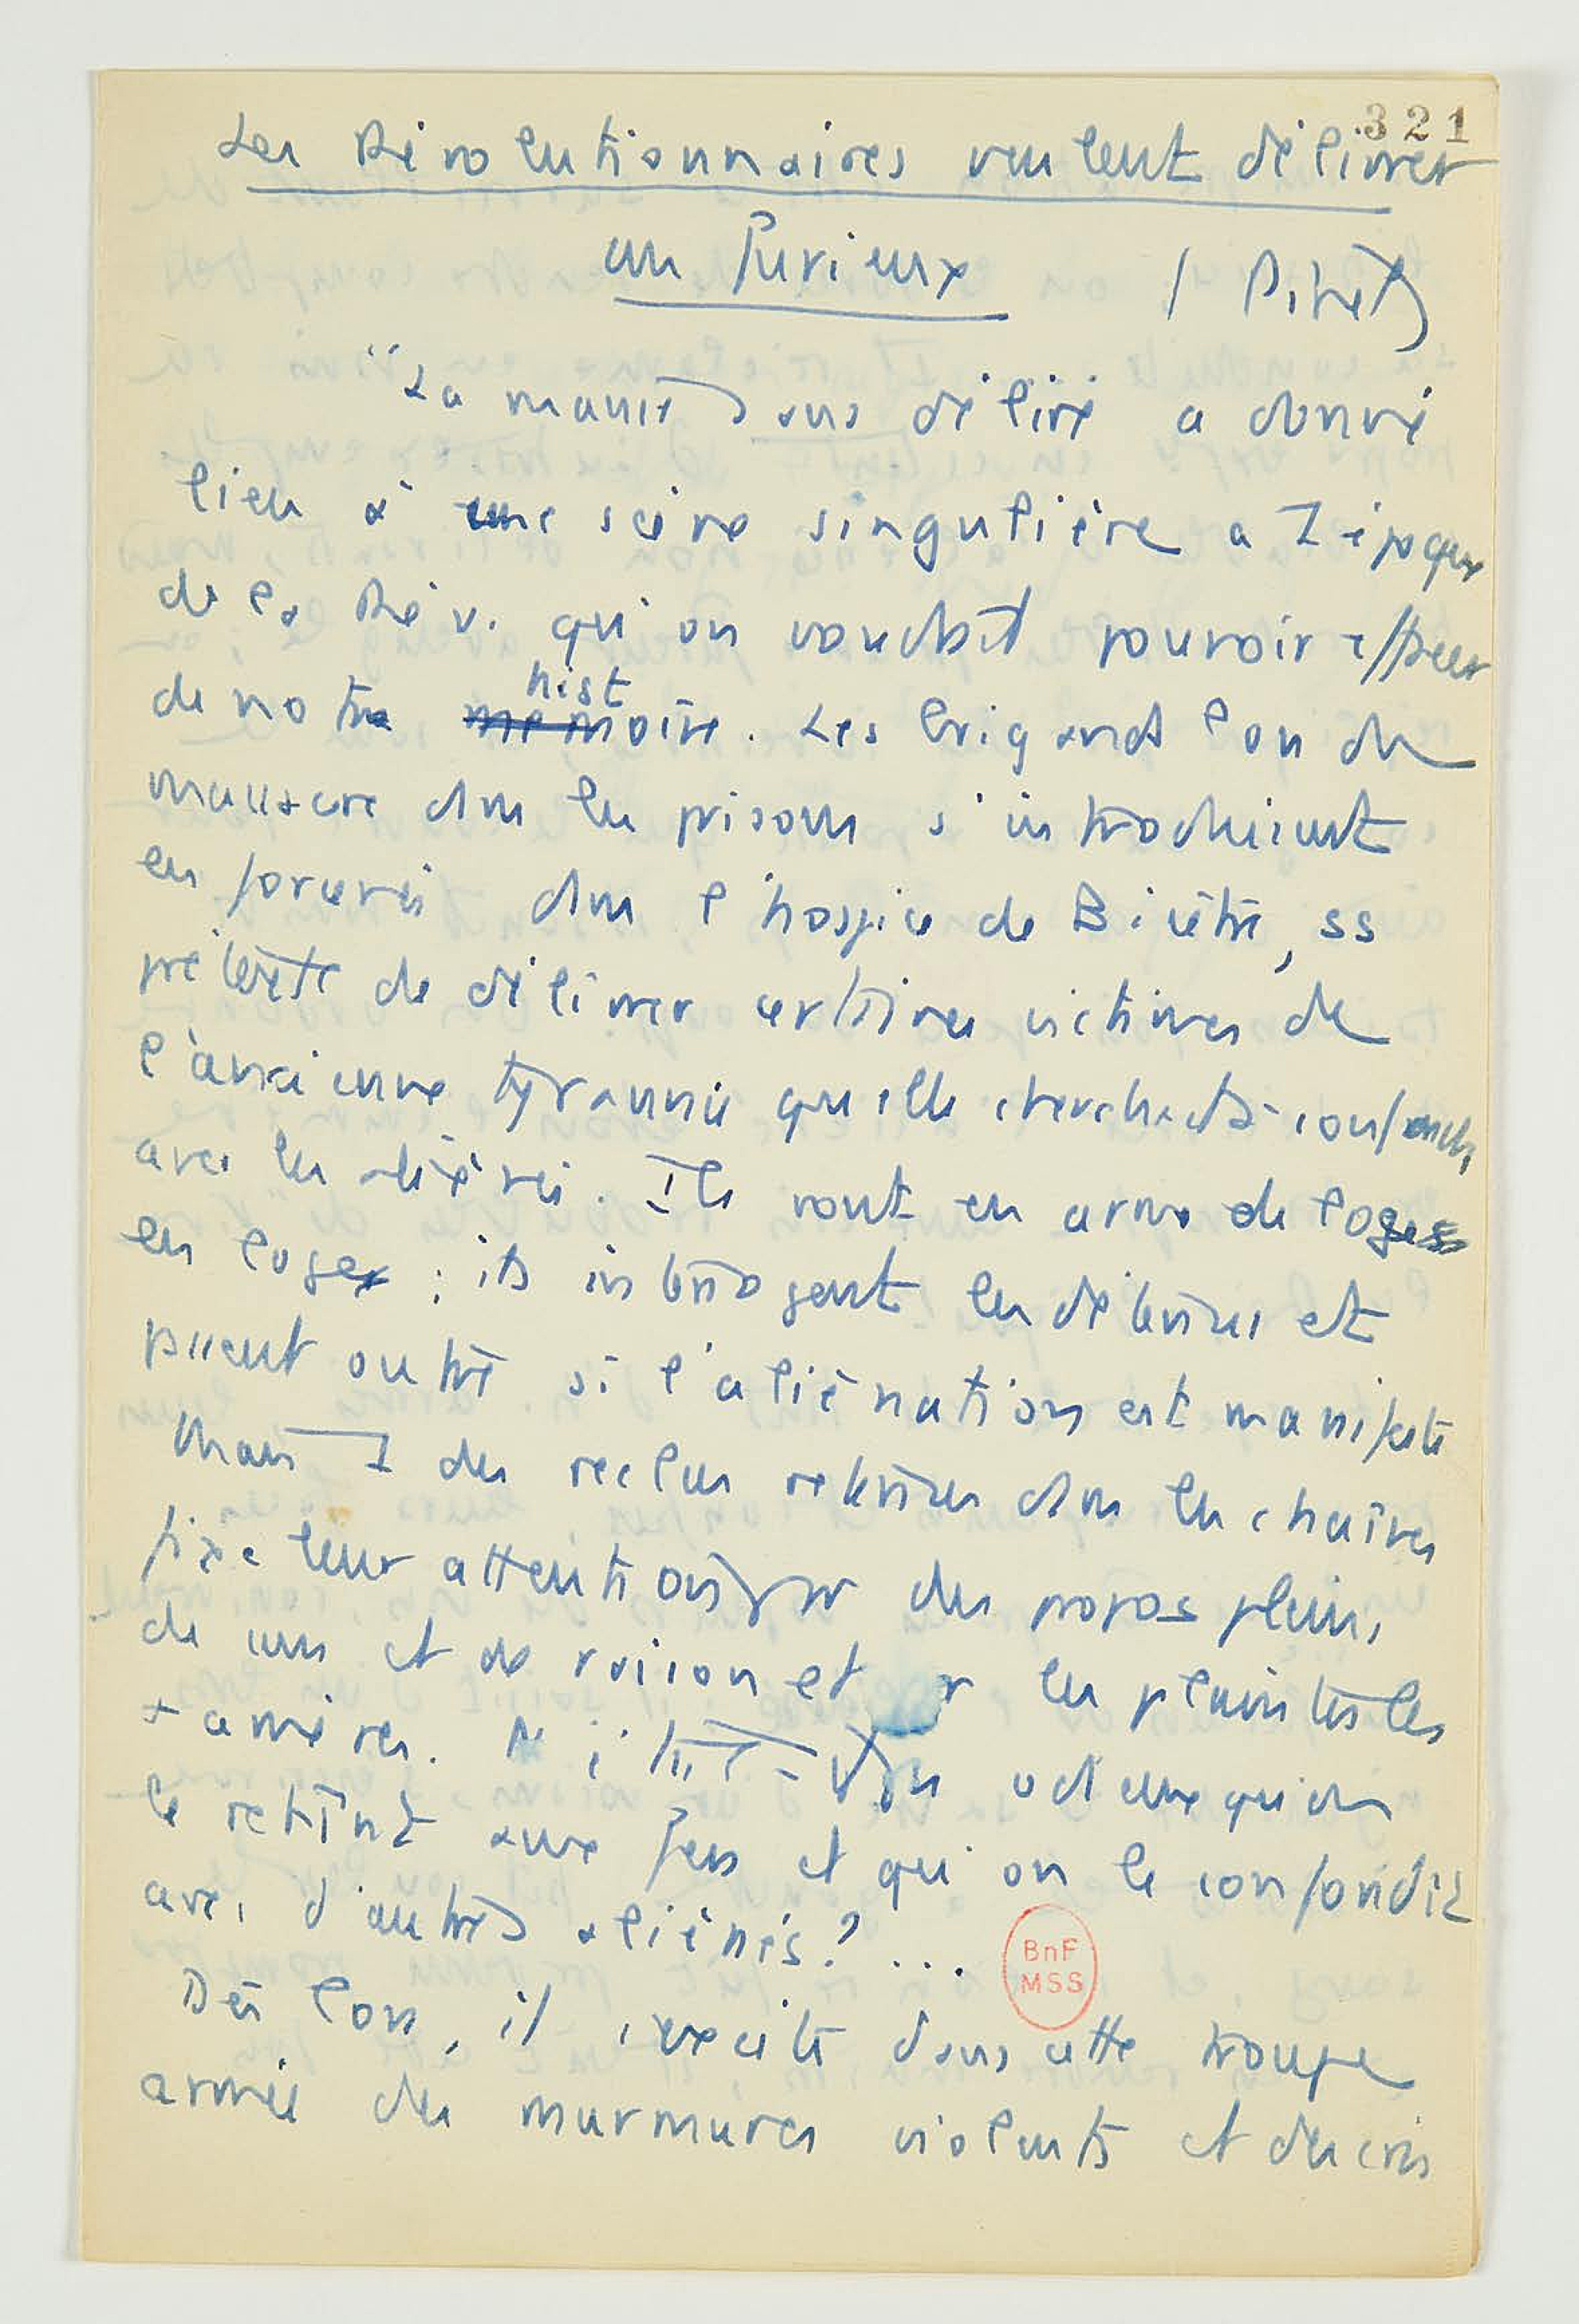 321
Les Révolutionnaires veulent délivrer
un furieux (Pinel)
"La manie sans délire a donné
lieu à une scène singulière a l'époque
de la Rév. qu'on voudrait pouvoir effacer
de notre mémoire hist. Les brigands lors du
massacre dans les prisons s'introduisirent
en forcenés dans l'hospice de Bicêtre, ss
prétexte de délivrer certaines victimes de
l'ancienne tyrannie qu'elle cherchait à confondre
avec les aliénés. Ils vont en armes de loges
en loges ; ils interrogent les détenus et
passent outre si l'aliénation est manifeste
Mais 1 des reclus retenus dans les chaînes
fixe leur attention par des propos pleins
de sens et de raison et par les plaintes les
+ amères. odieux qu'on
le retînt aux fers et qu'on le confondît
avec d'autres aliénés? ...
BnF
MSS
Dès lors, il excite dans cette troupe
armée des murmures violents et des cris